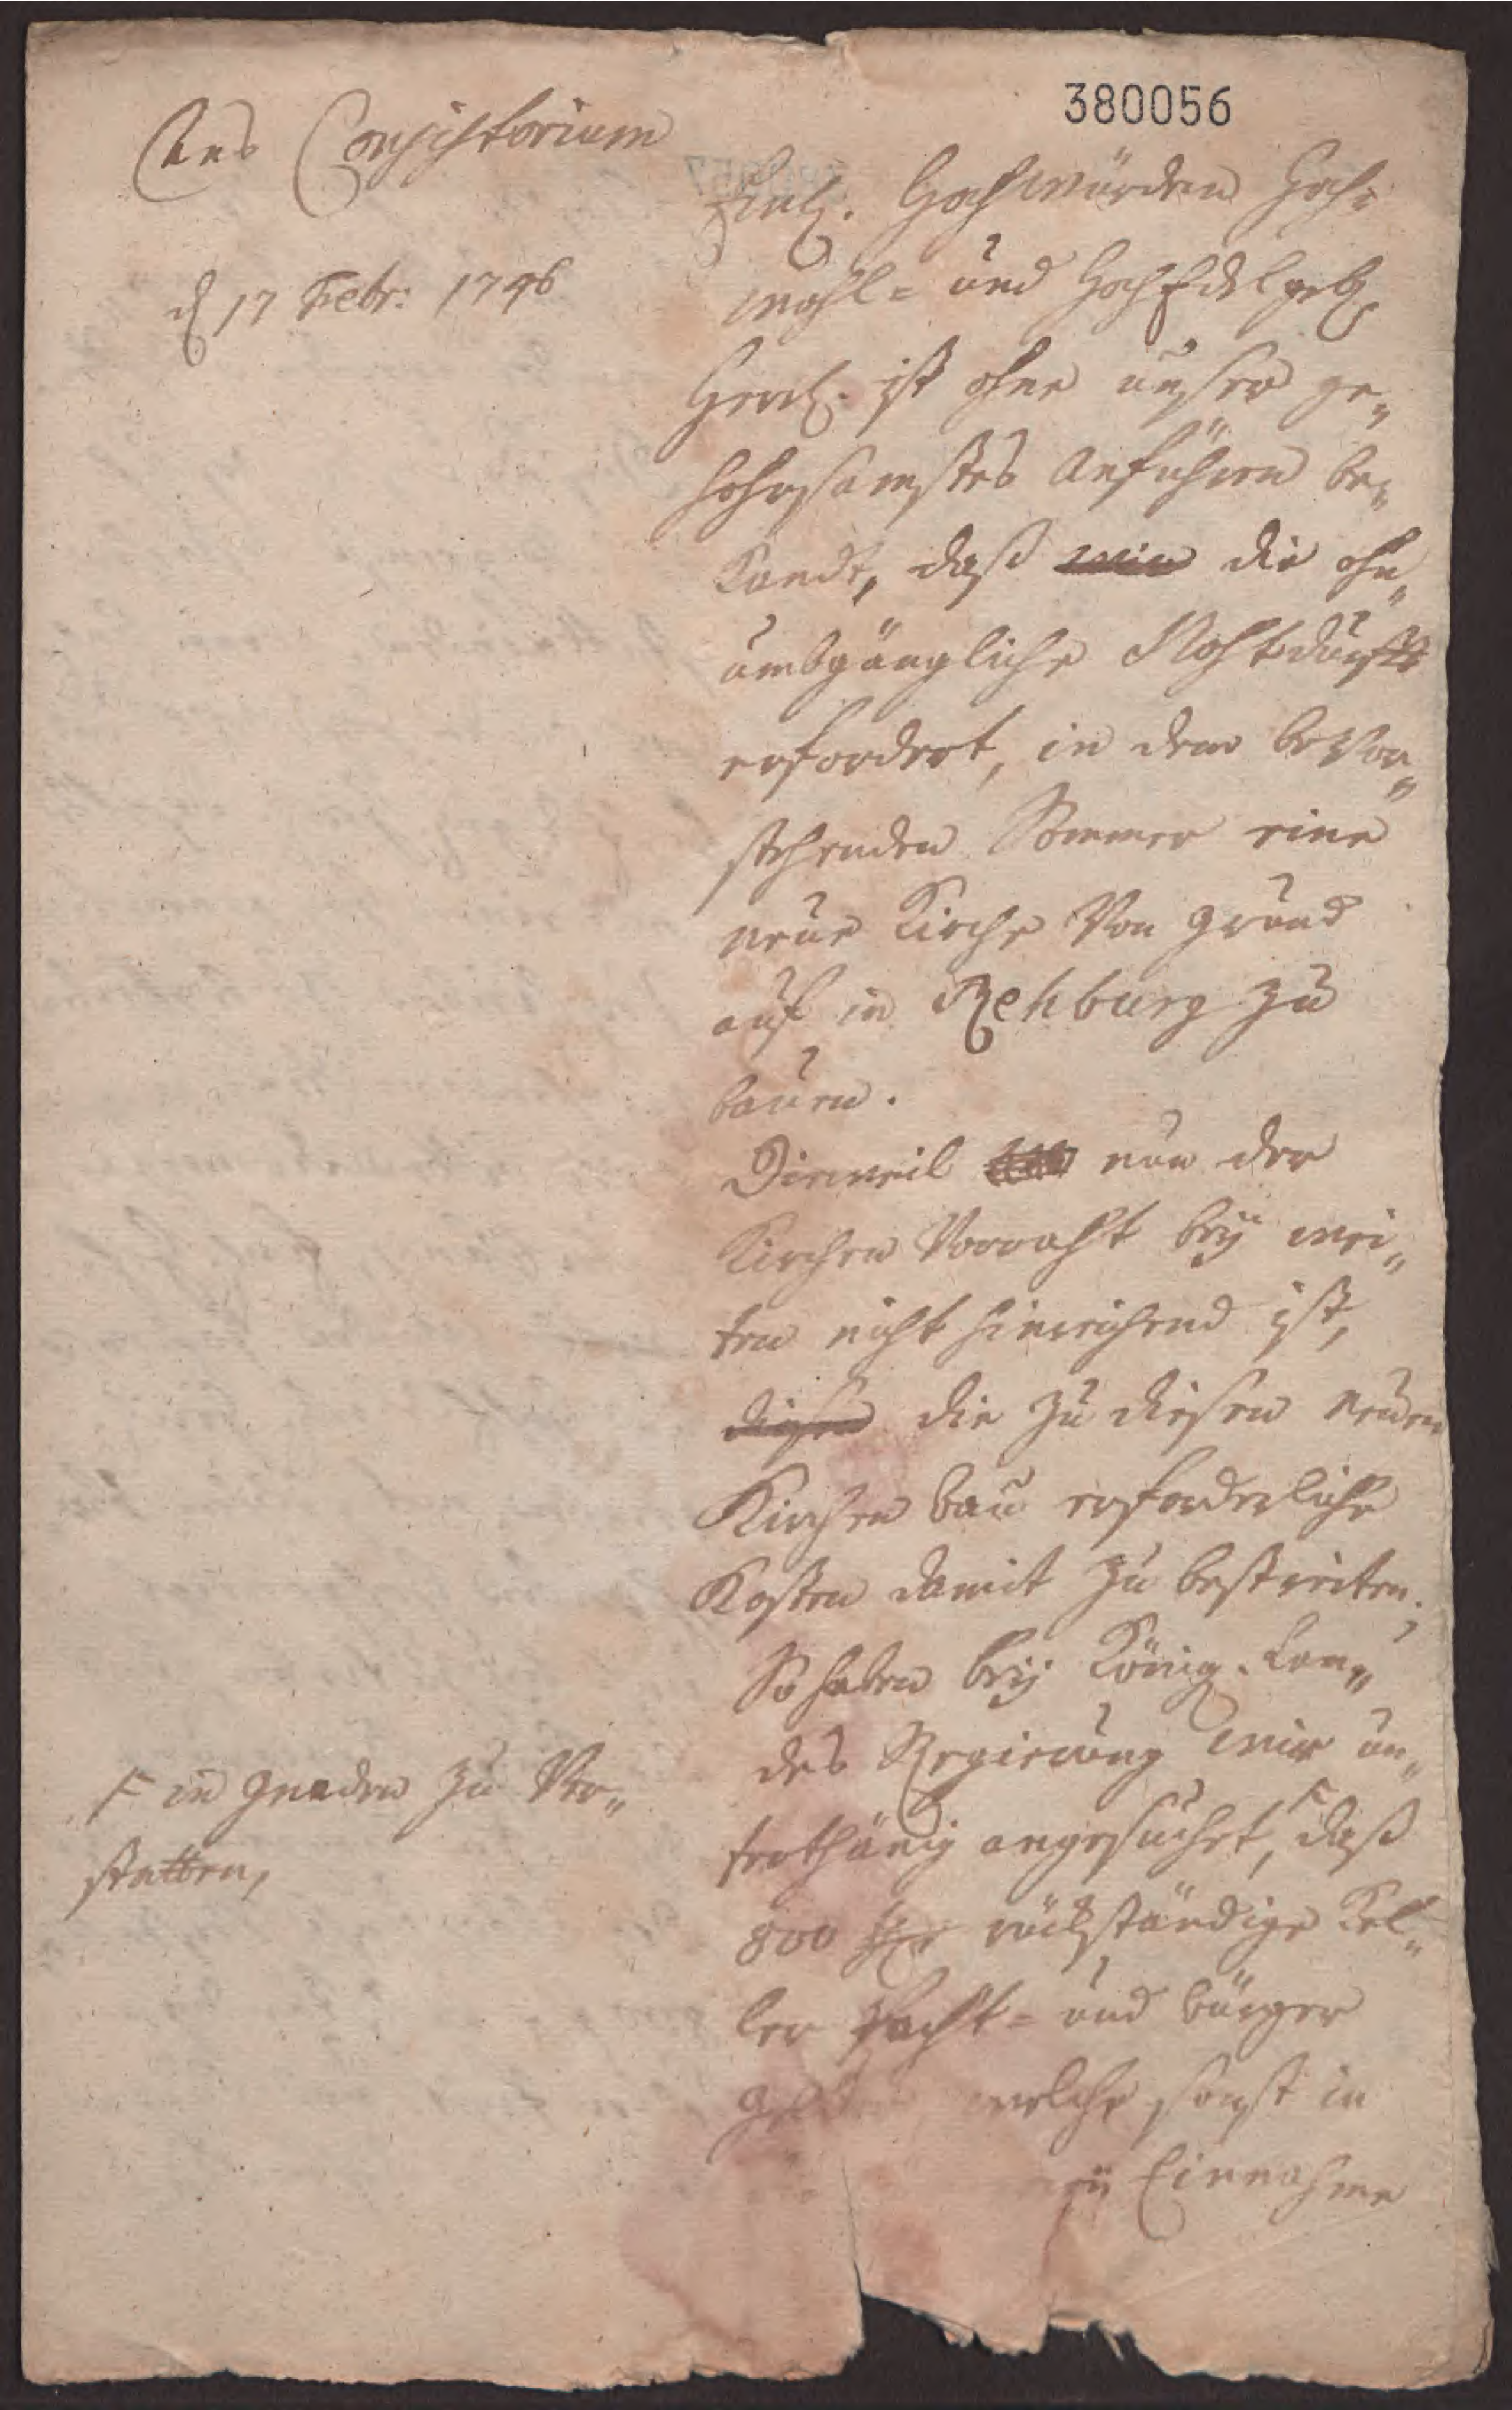 380056
Ans Consistorium
d 17 Febr: 1746
Hochwürden Hoch-
wohl- und HochEdelgeb.
Herrl. ist ohne unser ge„
hohrsamstes Anführen be„
kandt, daß wir die ohn„
umbgängliche Nohtdurfft
erfordert, in dem bevor„
stehenden Sommer eine
neue Kirche Von grund
auf in Rehburg zu
bauen.
Dieweil nun der
Kirchen Vorraht beÿ wei„
ten nicht hinreichend ist,
diesen die zu diesen neuen
Kirchen bau erforderliche
Kosten damit zu bestreiten;
So haben beÿ Königl. Lan„
des Regierung wir un„
terthänig angesuchet, F daß
800 rückständige Kel„
ler Pacht- und bürger
welche sonst in
Einnahme
F in gnaden zu Ver„
statten,